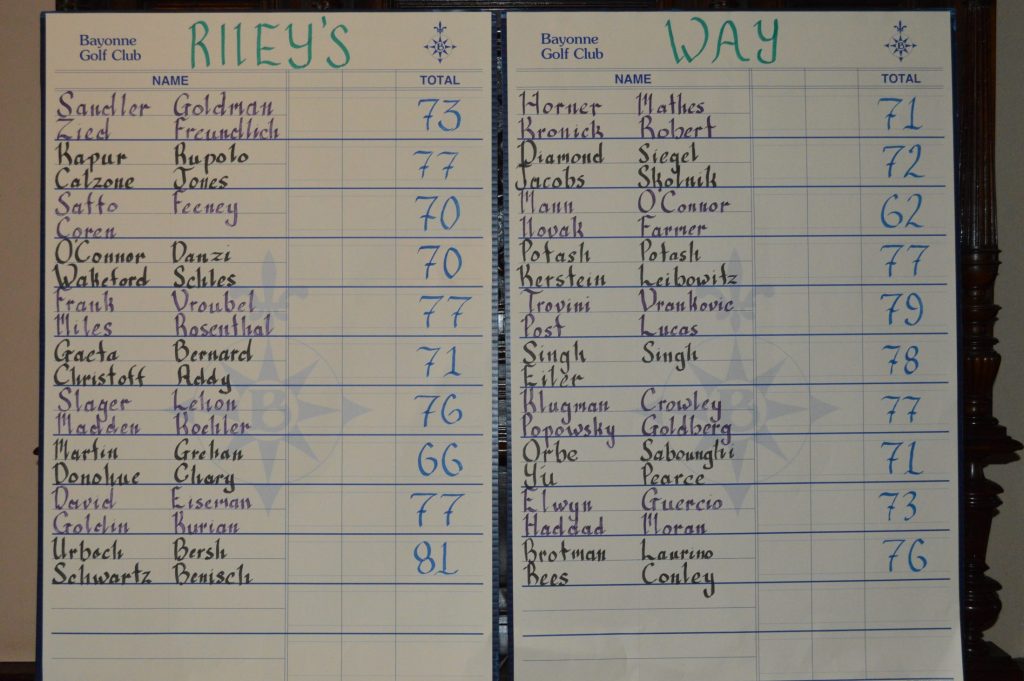 Bayonne
Golf Club
RILEY'S
NAME TOTAL
Sandler Goldman
73
Zied Freundlich
Kapur Rupolo
77
Calzone Jones
Saffo Feeney
70
Coren
O'Connor Danzi
70
Wakeford Schles
Frank Vroubel
77
Miles Rosenthal
Gaeta Bernard
71
Christoff Addy
Slager Lehon
76
Madden Koehler
Martin Grehan
66
Donohue Chary
David Eiseman
77
Goldin Kurian
Urbach Bersh
81
Schwartz Benisch
Bayonne
Golf Club
WAY
B
NAME TOTAL
Horner Mathes
71
Kronick Robert
Diamond Siegel
72
Jacobs Skolnik
Mann O'Connor
62
Novak Farmer
Potash Potash
77
Kerstein Leibowitz
Trovini Vrankovic
79
Post Lucas
Singh Singh
78
Eiler
Klugman Crowley
77
Popowsky Goldberg
Orbe Sabounghi
71
Yu Pearce
Elwyn Guercio
73
Haddad Moran
Brotman Laurino
76
Rees Conley